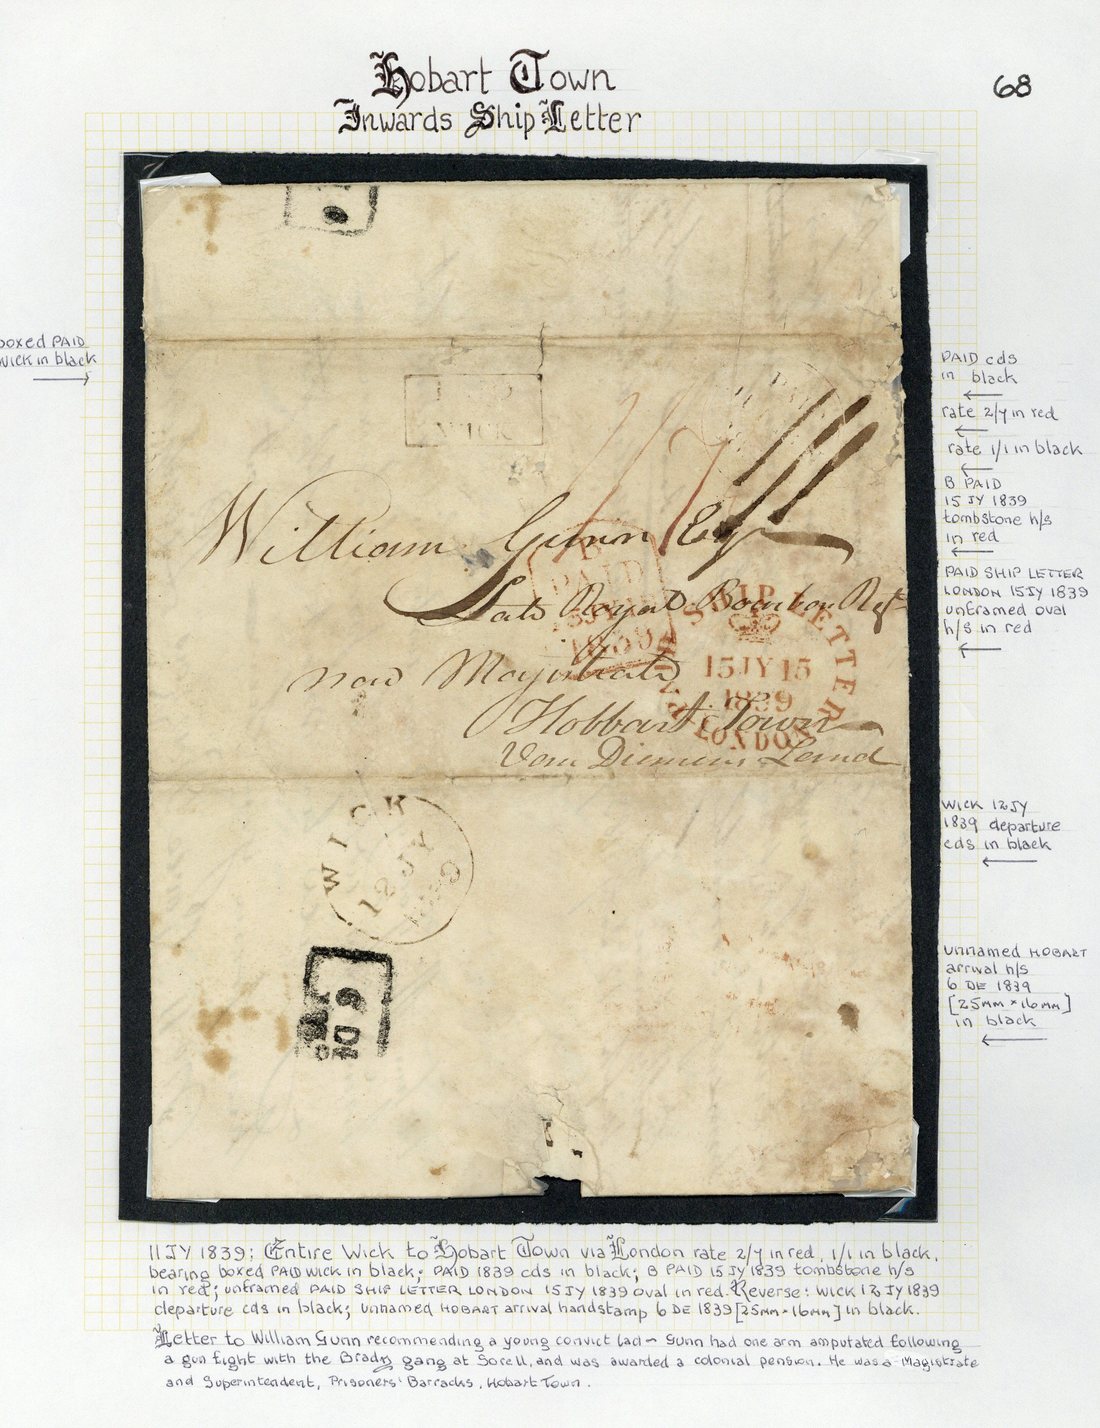 Hobart Town
68
Inwards Ship Letter
boxed PAID
WICK in black
PAID cds
in black
rate 2/7 in red
rate 1/1 in black
B PAID
15 JY 1839
tombstone h/s
in red
PAID SHIP LETTER
LONDON 15JY 1839
unframed oval
h/s in red
WICK
William Gunn Esqr
Late Royal Bourbon Regt
now Magistrate
Hobbart Town
Van Diemens Land
B
PAID
1839
SHIP LETTER
15JY15
1839
LONDON
WICK 12JY
1839 departure
cds in black
WICK
12 JY
1839
unnamed HOBART
arrival h/s
6 DE 1839
[25mm × 16mm]
in black
11 JY 1839: Entire Wick to Hobart Town via London rate 2/7 in red, 1/1 in black,
bearing boxed PAID WICK in black; PAID 1839 cds in black; B PAID 15 JY 1839 tombstone h/s
in red; unframed PAID SHIP LETTER LONDON 15 JY 1839 oval in red. Reverse: WICK 12 JY 1839
departure cds in black; unnamed HOBART arrival handstamp 6 DE 1839 [25mm × 16mm] in black.
Letter to William Gunn recommending a young convict lad ~ Gunn had one arm amputated following
a gun fight with the Brady gang at Sorell, and was awarded a colonial pension. He was a Magistrate
and Superintendent, Prisoners' Barracks, Hobart Town.